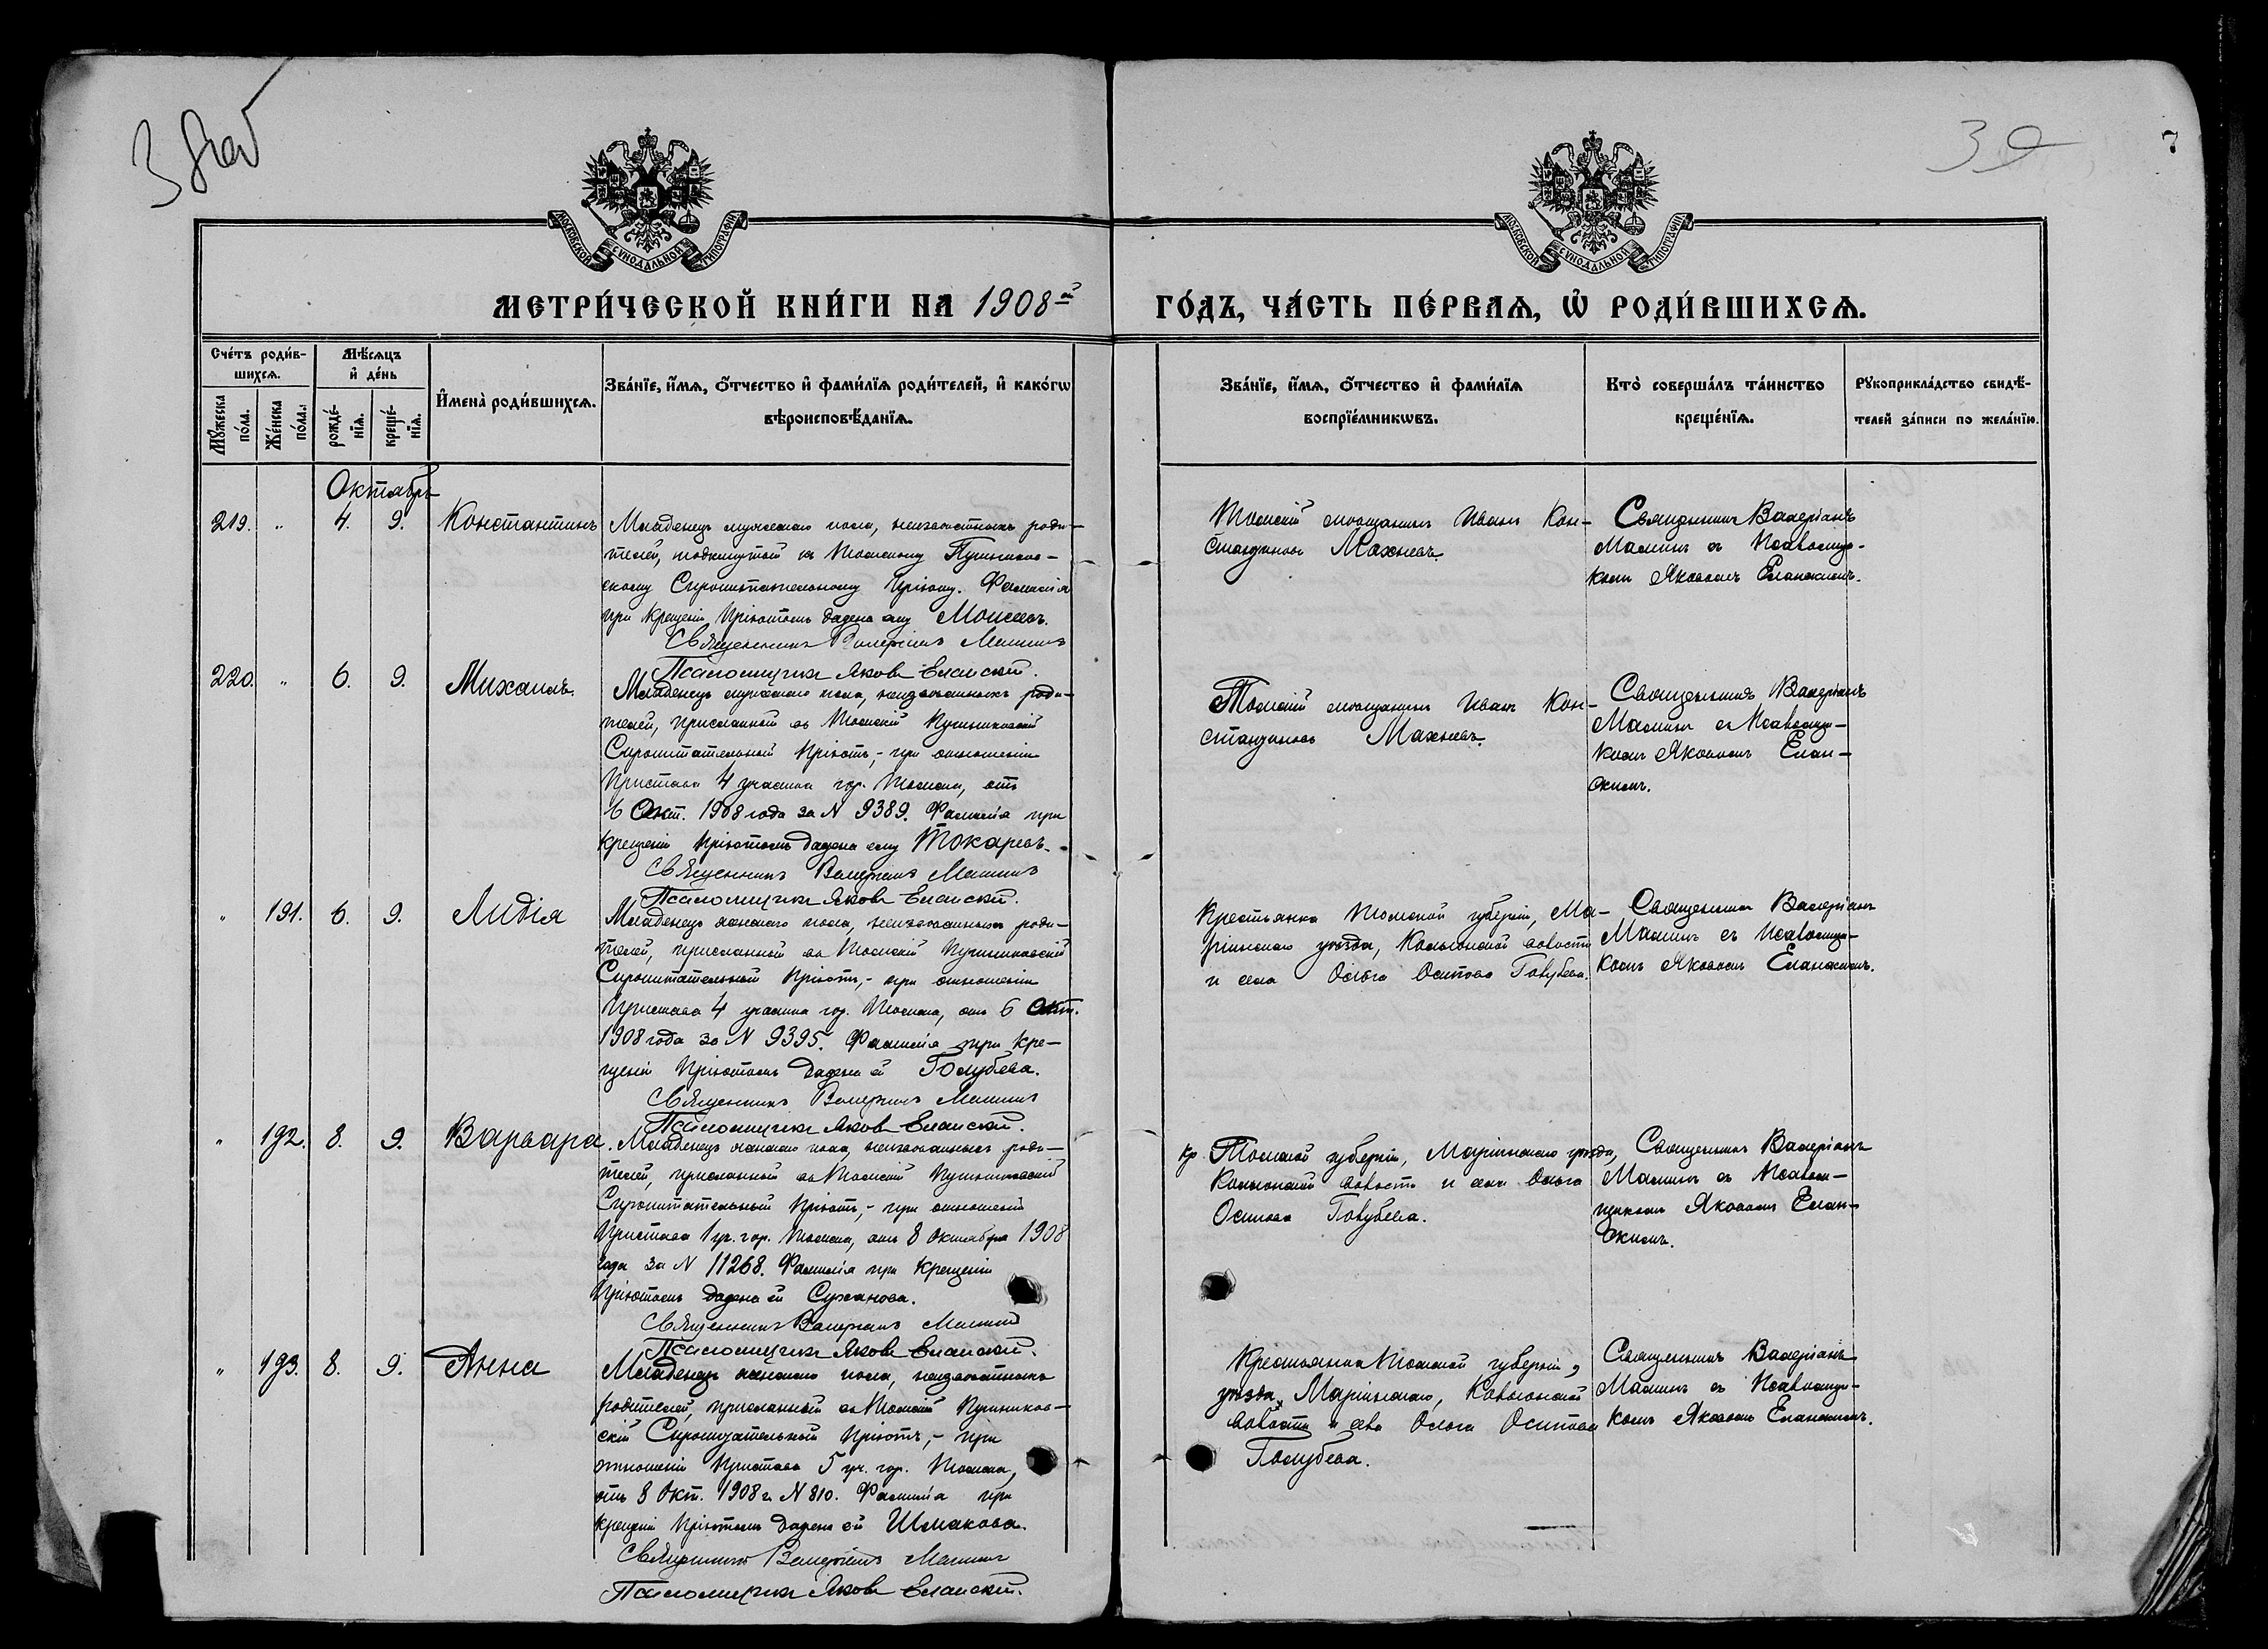 38об
39
7
МОСКОВСКОЙ СѴНОДАЛЬНОЙ ТИПОГРАФІИ
МОСКОВСКОЙ СѴНОДАЛЬНОЙ ТИПОГРАФІИ
МЕТРИ́ЧЕСКОЙ КНИ́ГИ НА 1908й
ГО́ДЪ, ЧА́СТЬ ПЕ́РВАѦ, Ѡ РОДИ́ВШИХСѦ.
Сче́тъ роди́в-
шихсѧ.
Мѣ́сѧцъ
и҆ де́нь
Мꙋ́жеска
по́ла.
Же́нска
по́ла.
рожде́-
нїѧ.
креще́-
нїѧ.
И҆мена̀ роди́вшихсѧ.
Зва́нїе, и҆́мѧ, ѻ҆́тчество и҆ фами́лїѧ роди́телей, и҆ како́гѡ
вѣроисповѣ́данїѧ.
Зва́нїе, и҆́мѧ, ѻ҆́тчество и҆ фами́лїѧ
воспрїе́мникѡвъ.
Кто̀ соверша́лъ та́инство
креще́нїѧ.
Рꙋкоприкла́дство свидѣ́-
телей за́писи по жела́нїю.
Октябрь
219. " 4. 9. Константинъ
Младенецъ мужескаго пола, неизвѣстныхъ роди-
телей, подкинутый къ Томскому Пушников-
скому Сиропитательному Пріюту. Фамилія
при крещеніи Пріютомъ дадена ему Моисеевъ.
Священникъ Валеріанъ Маминъ
Псаломщикъ Яковъ Еланскій.
Томскій мѣщанинъ Иванъ Кон-
стантиновъ Махневъ.
Священникъ Валеріанъ
Маминъ съ Псаломщи-
комъ Яковомъ Еланскимъ.
220. " 6. 9. Михаилъ.
Младенецъ мужескаго пола, неизвѣстныхъ роди-
телей, присланный въ Томскій Пушниковскій
Сиропитательный Пріютъ,- при отношеніи
Пристава 4 участка гор. Томска, отъ
6 Окт. 1908 года за N 9389. Фамилія при
крещеніи Пріютомъ дадена ему Токаревъ.
Священникъ Валеріанъ Маминъ
Псаломщикъ Яковъ Еланскій.
Томскій мѣщанинъ Иванъ Кон-
стантиновъ Махневъ.
Священникъ Валеріанъ
Маминъ съ Псаломщи-
комъ Яковомъ Елан-
скимъ.
" 191. 6. 9. Лидія
Младенецъ женскаго пола, неизвѣстныхъ роди-
телей, присланный въ Томскій Пушниковскій
Сиропитательный Пріютъ,- при отношеніи
Пристава 4 участка гор. Томска, отъ 6 Окт.
1908 года за N 9395. Фамилія при кре-
щеніи Пріютомъ дадена ей Голубева.
Священникъ Валеріанъ Маминъ
Псаломщикъ Яковъ Еланскій.
Крестьянка Томской губерніи, Ма-
ріинскаго уѣзда, Колыонской волости
и села Ольга Осипова Голубева.
Священникъ Валеріанъ
Маминъ съ Псаломщи-
комъ Яковомъ Еланскимъ.
" 192. 8. 9. Варвара.
Младенецъ женскаго пола, неизвѣстныхъ роди-
телей, присланный въ Томскій Пушниковскій
Сиропитательный Пріютъ,- при отношеніи
Пристава 1 уч. гор. Томска, отъ 8 Октября 1908
года за N 11268. Фамилія при крещеніи
Пріютомъ дадена ей Суханова.
Священникъ Валеріанъ Маминъ
Псаломщикъ Яковъ Еланскій.
Кр. Томской губерніи, Маріинскаго уѣзда,
Колыонской волости и села Ольга
Осипова Голубева.
Священникъ Валеріанъ
Маминъ съ Псалом-
щикомъ Яковомъ Елан-
скимъ.
" 193. 8. 9. Анна
Младенецъ женскаго пола, неизвѣстныхъ
родителей, присланный въ Томскій Пушников-
скій Сиропитательный Пріютъ,- при
отношеніи Пристава 5 уч. гор. Томска,
отъ 8 Окт. 1908 г. N 810. Фамилія при
крещеніи Пріютомъ дадена ей Шмакова.
Священникъ Валеріанъ Маминъ
Псаломщикъ Яковъ Еланскій.
Крестьянка Томской губерніи,
уѣзда Маріинскаго, Колыонской
волости и села Ольга Осипова
Голубева.
Священникъ Валеріанъ
Маминъ съ Псаломщи-
комъ Яковомъ Еланскимъ.